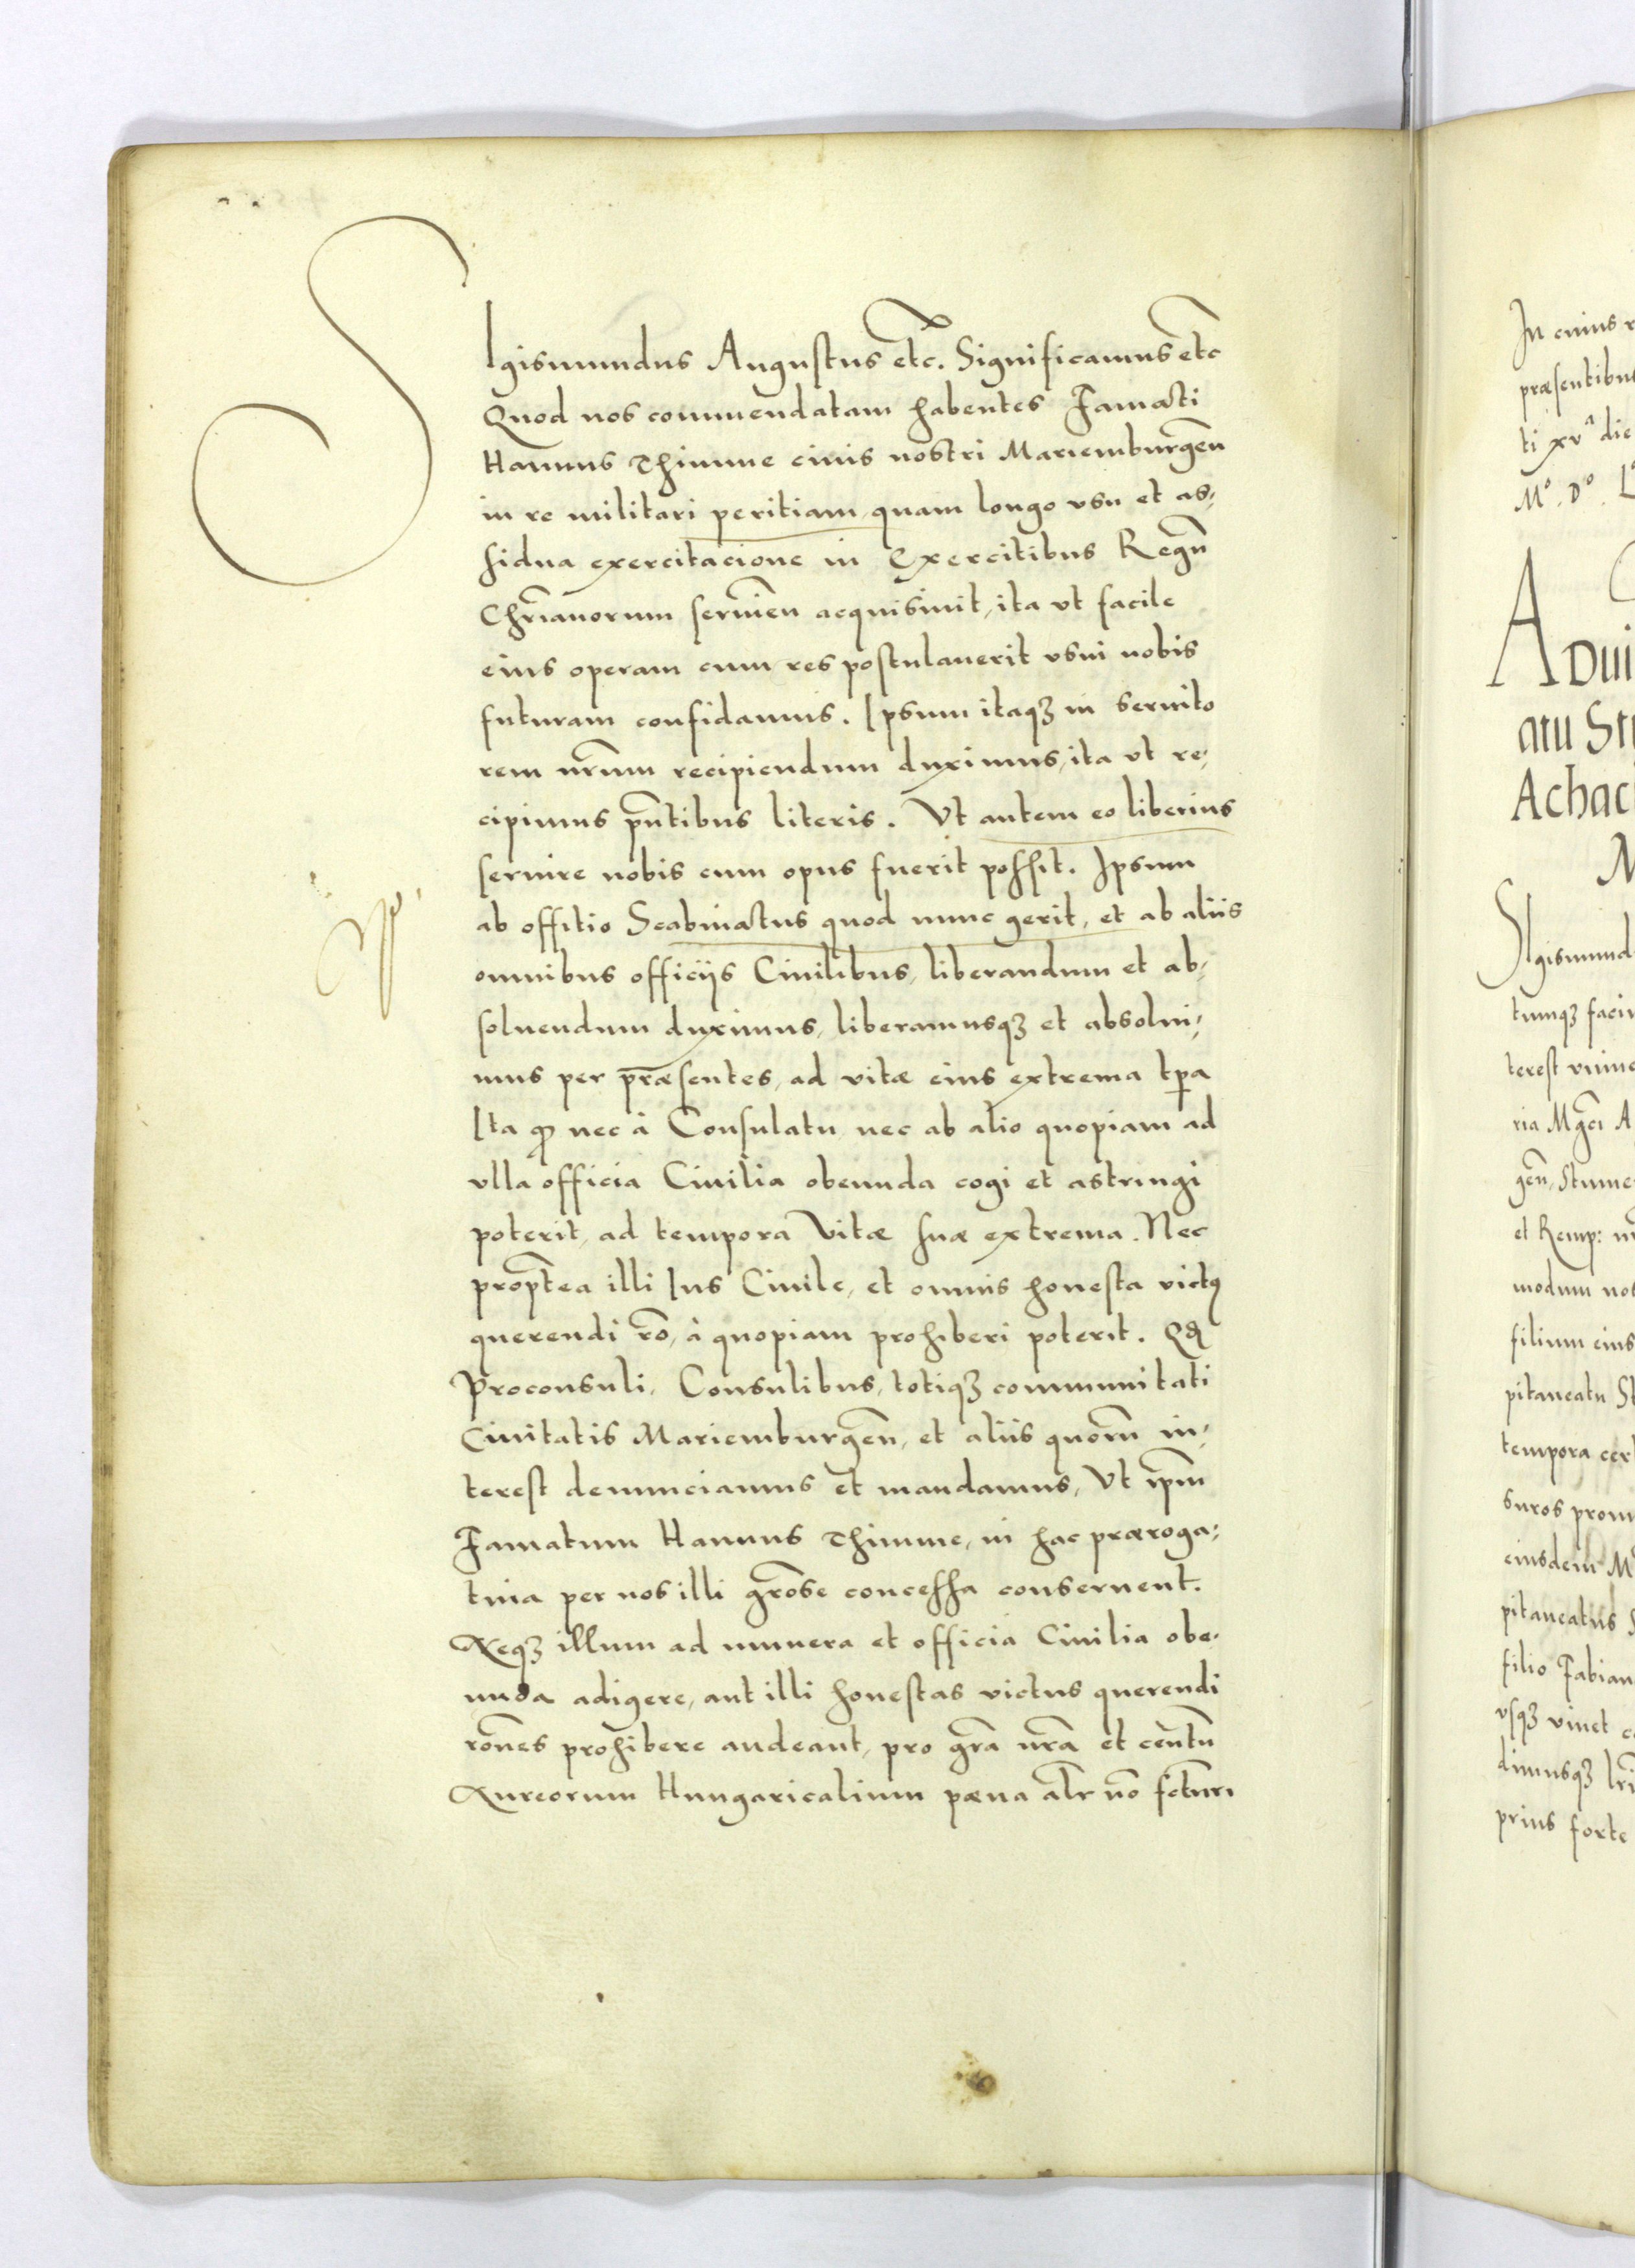 SIgismundus Augustus etc̃. Significamus etc̃
Quod nos commendatam habentes Famati
Hannus Thimme ciuis nostri Mariemburgeñ
in re militari peritiam, quam longo vsu et as-
sidua exercitacione in Exercitibus Reguṁ
Chr̃ianorum seruieñ acquisiuit, ita vt facile
eius operam cum res postulauerit vsui nobis
futuram confidamus. Ipsum itaqȝ in seruito
rem nr̃um recipiendum duximus, ita vt re-
cipimus pñtibus literis. Vt autem eo liberius
seruire nobis cum opus fuerit possit. Ipsum
ab offitio Scabinatus quod nunc gerit, et ab aliis
omnibus officijs Ciuilibus, liberandum et ab-
soluendum duximus, liberamusqȝ et absolui-
mus per præsentes, ad vitæ eius extrema tp̃a
Ita ꝙ nec à Consulatu nec ab alio quopiam ad
vlla officia Ciuilia obeunda cogi et astringi
poterit, ad tempora Vitæ suæ extrema. Nec
propt̃ea illi Ius Ciuile, et omnis honesta victꝰ
querendi rõ, à quopiam prohiberi poterit. Qđ
Proconsuli, Consulibus, totiqȝ communitati
Ciuitatis Mariemburgeñ, et aliis quor̃u in-
terest denunciamus et mandamus, Vt ip̃m
Famatum Hannus Thimme, in hac præroga-
tiua per nos illi gr̃ose concessa conseruent.
Neqȝ illum ad munera et officia Ciuilia obe-
unda adigere, aut illi honestas victus querendi
rões prohibere audeant, pro gr̃a nr̃a et centũ
Aureorum Hungaricalium pæna alr̃ nõ fcturi
In cuius
præsentibus
ti xvᵃ die
Mº. Dº.
ADui
atu
Achac
SIgismund
tumqȝ
terest
ria Mgci A
geñ, Stume
et Remp:
modum nos
filium eius
pitaneatu St
tempora cer
suros prom
eiusdem M
pitaneatus
filio Fabian
vsqȝ viuet
dimusqȝ
prius forte